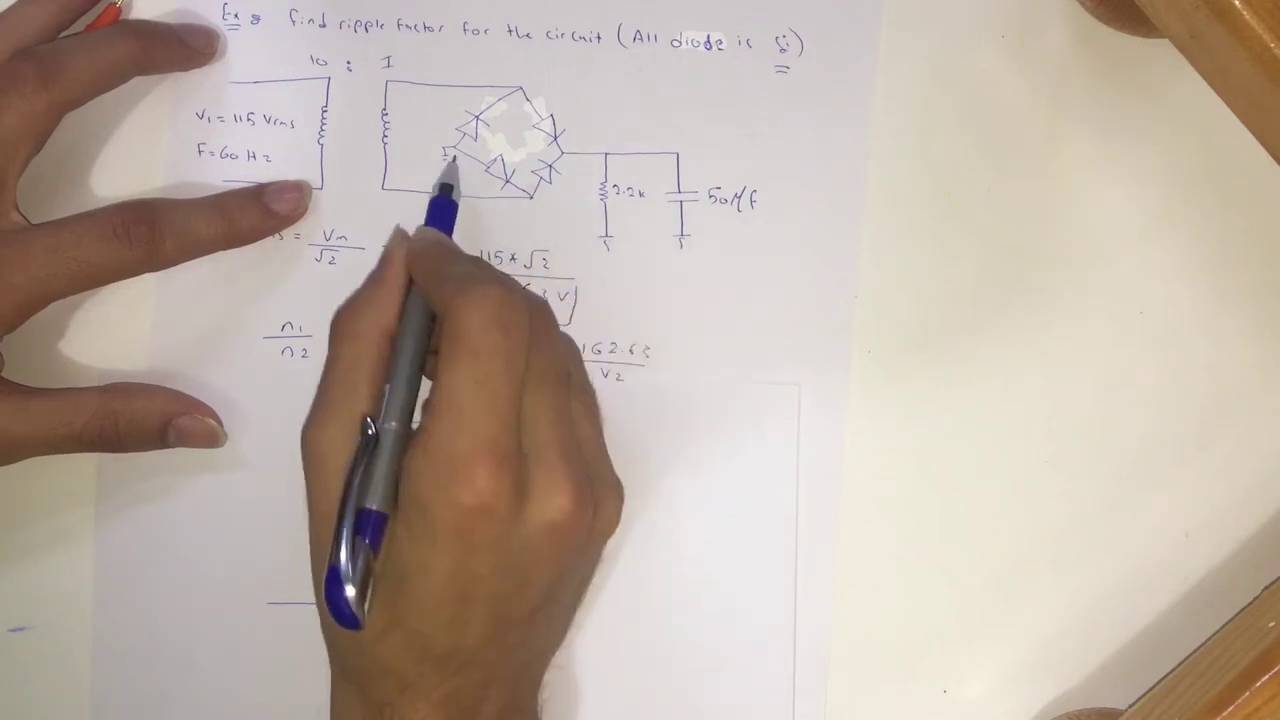 Ex 8 find ripple factor for the circuit (All diode is Si)
10 : 1
V1 = 115 Vrms
F=60 Hz
2.2k
50 Mf
= Vm
√2
115*√2
V
n1
n2
162.63
V2